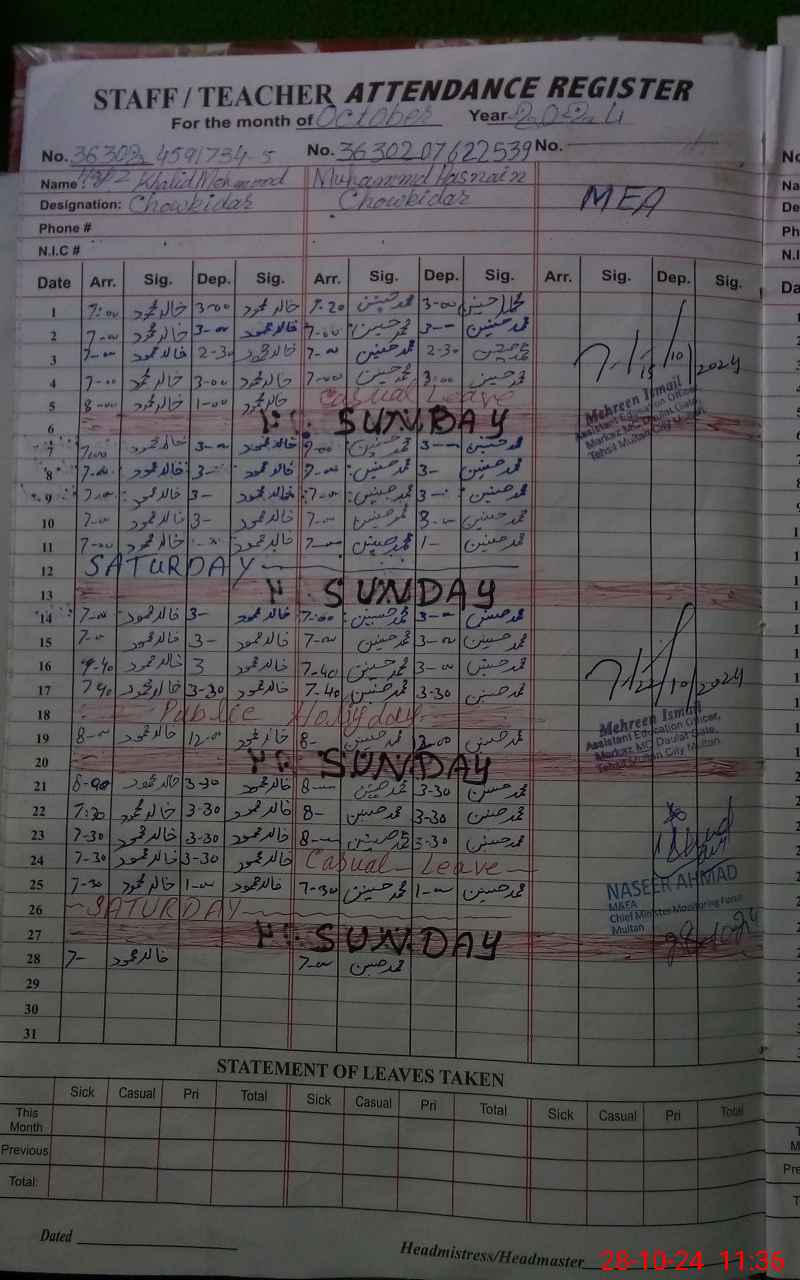 STAFF / TEACHER ATTENDANCE REGISTER
For the month of October Year 2024
No. 36302 4591734-5 No. 3630207622539 No.
Name: Khalid Mehmood Muhammad Hasnain
Designation: Chowkidar Chowkidar MEA
Phone #
N.I.C #
Date Arr. Sig. Dep. Sig. Arr. Sig. Dep. Sig. Arr. Sig. Dep. Sig.
1 7:00 خالد محمود 3-00 خالد محمود 7-20 محمد حسنین 3-00 محمد حسنین
2 7-00 خالد محمود 3-00 خالد محمود 7-00 محمد حسنین 3-- محمد حسنین
3 7-00 خالد محمود 2-30 خالد محمود 7-00 محمد حسنین 2-30 محمد حسنین
7/15/10/2024
4 7-00 خالد محمود 3-00 خالد محمود 7-00 محمد حسنین 3:00 محمد حسنین
5 8-00 خالد محمود 1-00 خالد محمود Casual Leave
Mehreen Ismail
Assistant Education Officer,
Markaz MC Daulat Gate,
Tehsil Multan City Multan.
6 SUNDAY
7 7:00 خالد محمود 3-00 خالد محمود 7-00 محمد حسنین 3-- محمد حسنین
8 7-00 خالد محمود 3- خالد محمود 7-00 محمد حسنین 3- محمد حسنین
9 7-00 خالد محمود 3- خالد محمود 7-00 محمد حسنین 3-- محمد حسنین
10 7-00 خالد محمود 3- خالد محمود 7-00 محمد حسنین 3-00 محمد حسنین
11 7-00 خالد محمود خالد محمود 7-00 محمد حسنین 1- محمد حسنین
12 SATURDAY
13 SUNDAY
14 7-00 خالد محمود 3- خالد محمود 7:00 محمد حسنین 3-00 محمد حسنین
15 7-00 خالد محمود 3- خالد محمود 7-00 محمد حسنین 3-00 محمد حسنین
16 خالد محمود 3 خالد محمود 7-40 محمد حسنین 3-00 محمد حسنین
17 7 40 خالد محمود 3-30 خالد محمود 7-40 محمد حسنین 3-30 محمد حسنین
7/22/10/2024
18 Public Holyday
Mehreen Ismail
Assistant Education Officer,
Markaz MC Daulat Gate,
Tehsil Multan City Multan.
19 8-00 خالد محمود 12-00 خالد محمود 8- محمد حسنین محمد حسنین
20 SUNDAY
21 خالد محمود 3-30 خالد محمود 8-- محمد حسنین 3-30 محمد حسنین
22 7:30 خالد محمود 3-30 خالد محمود 8- محمد حسنین 3-30 محمد حسنین
23 7-30 خالد محمود 3-30 خالد محمود 8-- محمد حسنین 3-30 محمد حسنین
24 7-30 خالد محمود 3-30 خالد محمود Casual Leave
25 7-30 خالد محمود 1-00 خالد محمود 7-30 محمد حسنین 1-00 محمد حسنین
NASEER AHMAD
M&EA
Chief Minister Monitoring Force
Multan
26 SATURDAY
27 SUNDAY
28 7- خالد محمود 7-00 محمد حسنین
29
30
31
STATEMENT OF LEAVES TAKEN
Sick Casual Pri Total Sick Casual Pri Total Sick Casual Pri Total
This Month
Previous
Total:
Dated
Headmistress/Headmaster
28-10-24 11:36